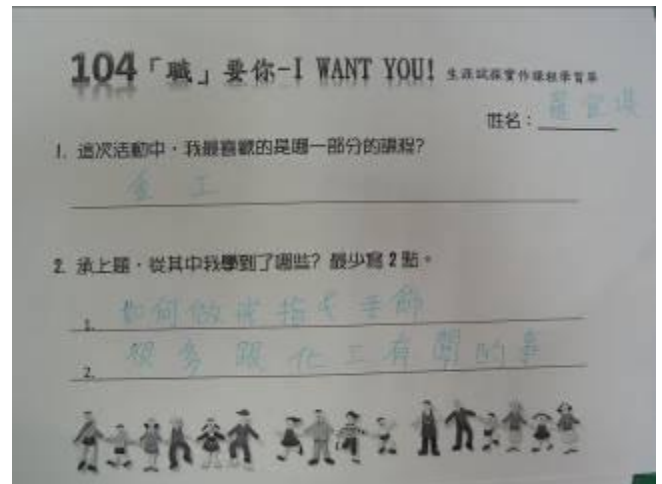 104「職」要你-I WANT YOU! 生涯試探實作課程學習單
姓名：羅宜
1. 這次活動中，我最喜歡的是哪一部分的課程?
金工
2. 承上題，從其中我學到了哪些? 最少寫2點。
1. 如何做戒指或手飾
2. 很多跟化工有關的事